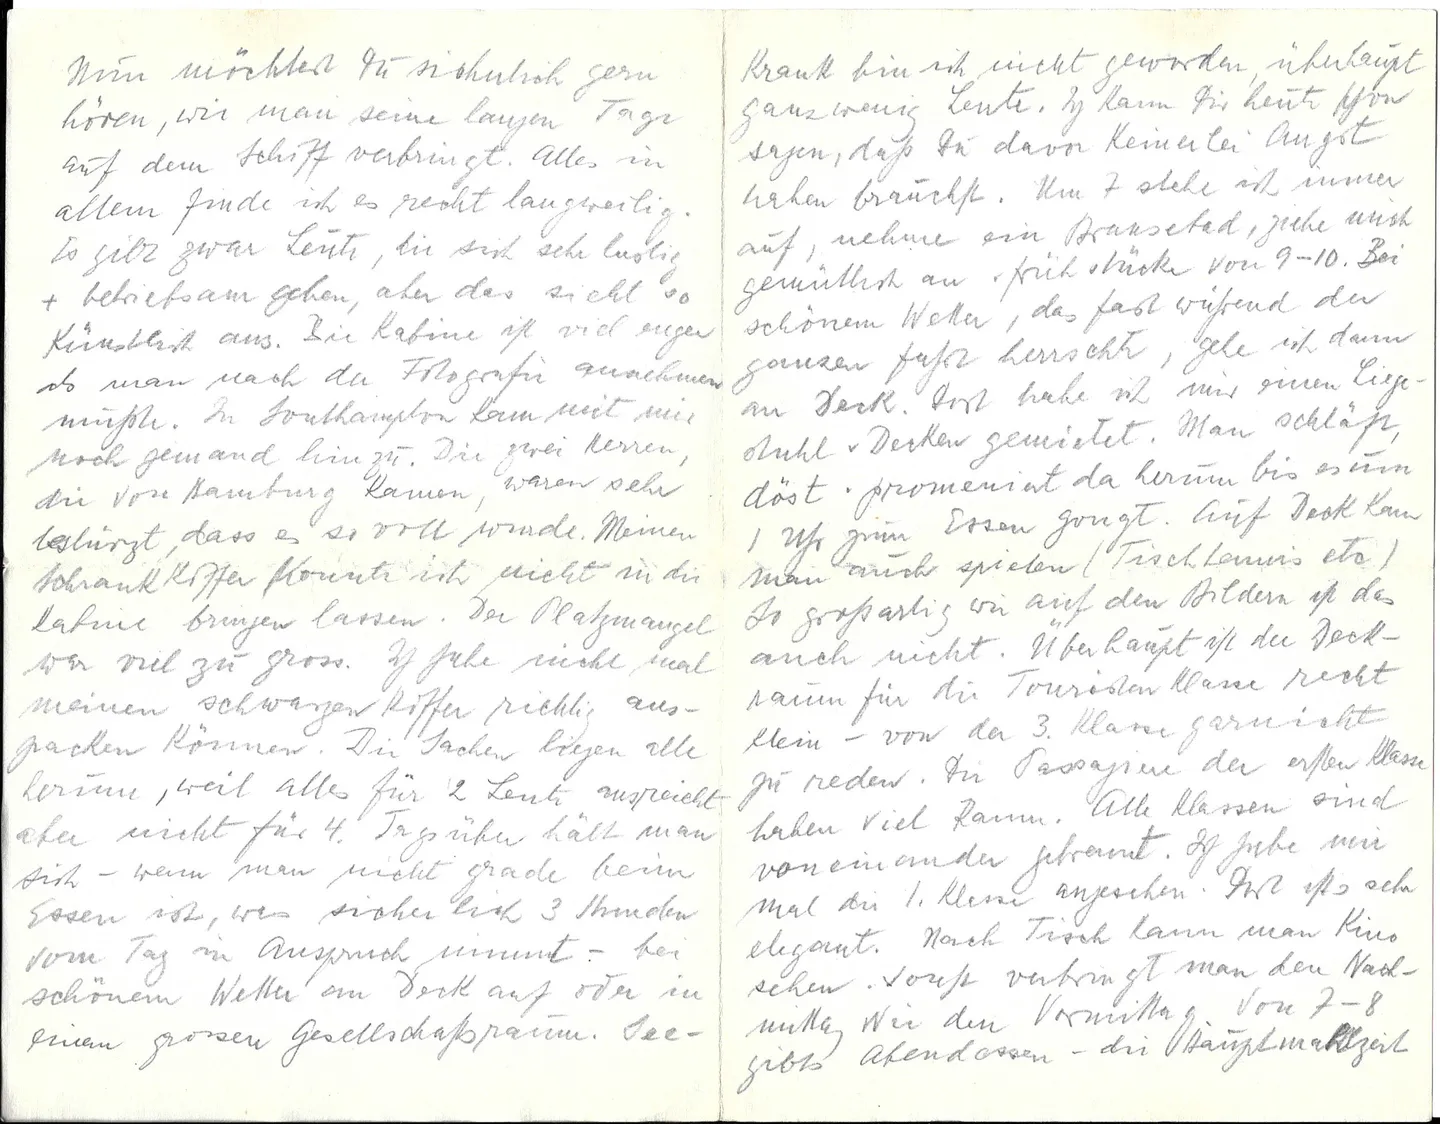 Nun möchtest Du sicherlich gern
hören, wie man seine langen Tage
auf dem Schiff verbringt. Alles in
allem finde ich es recht langweilig.
Es gibt zwar Leute, die sich sehr lustig
+ betriebsam geben, aber das sieht so
künstlich aus. Die Kabine ist viel enger
als man nach der Fotografie annehmen
müßte. In Southampton kam mit mir
noch jemand hinzu. Die zwei Herren,
die von Hamburg kamen, waren sehr
bestürzt, dass es so voll wurde. Meinen
Schrankkoffer konnte ich nicht in die
Kabine bringen lassen. Der Platzmangel
war viel zu gross. Ich habe nicht mal
meinen schwarzen Koffer richtig aus-
packen können. Die Sachen liegen alle
herum, weil alles für 2 Leute ausreicht
aber nicht für 4. Tagsüber hält man
sich – wenn man nicht grade beim
Essen ist, was sicherlich 3 Stunden
vom Tag in Anspruch nimmt – bei
schönem Wetter an Deck auf oder in
einem grossen Gesellschaftsraum. See-
Krank bin ich nicht geworden, überhaupt
ganz wenig Leute. Ich kann Dir heute schon
sagen, daß Du davor keinerlei Angst
haben brauchst. Um 7 stehe ich immer
auf, nehme ein Brausebad, ziehe mich
gemütlich an + frühstücke von 9–10. Bei
schönem Wetter, das fast während der
ganzen Fahrt herrschte, gehe ich dann
an Deck. Dort habe ich mir einen Liege-
stuhl + Decken gemietet. Man schläft,
döst + promeniert da herum bis es um
1 Uhr zum Essen gongt. Auf Deck kann
man auch spielen (Tischtennis etc)
So großartig wie auf den Bildern ist das
auch nicht. Überhaupt ist der Deck-
raum für die Touristenklasse recht
klein – von der 3. Klasse garnicht
zu reden. Die Passagiere der ersten Klasse
haben viel Raum. Alle Klassen sind
voneinander getrennt. Ich habe mir
mal die 1. Klasse angesehen. Dort ists sehr
elegant. Nach Tisch kann man Kino
sehen. Sonst verbringt man den Nach-
mittag wie den Vormittag. Von 7–8
gibts Abendessen – die Hauptmahlzeit